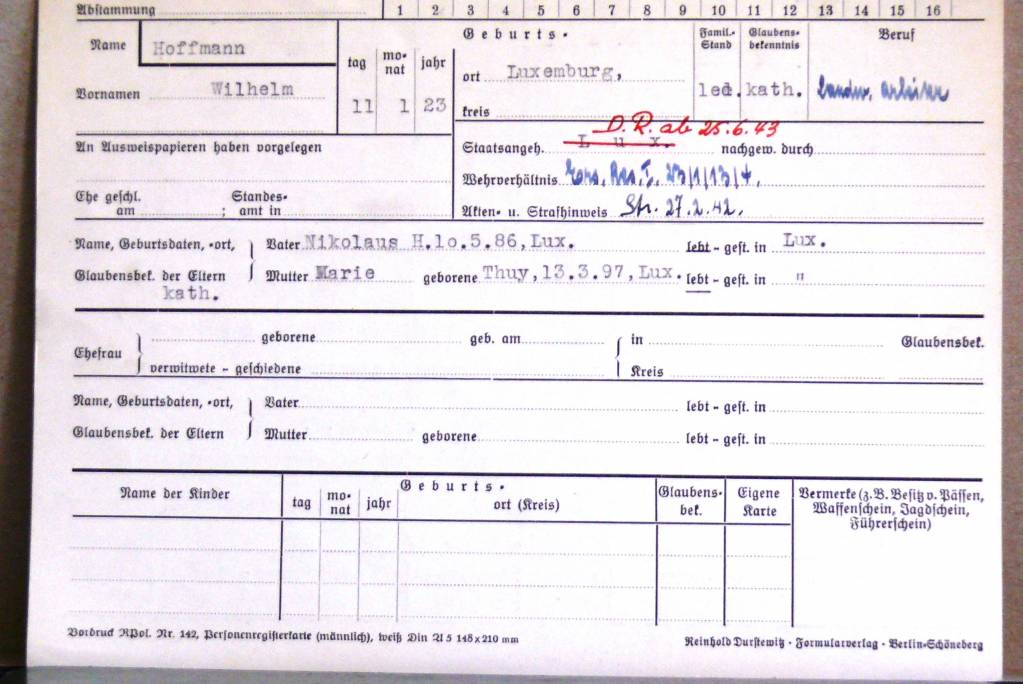 Abstammung 1 2 3 4 5 6 7 8 9 10 11 12 13 14 15 16
Name Hoffmann
Vornamen Wilhelm
tag monat jahr
11 1 23
Geburts-
ort Luxemburg,
kreis
Famil.-Stand
led.
Glaubensbekenntnis
kath.
Beruf
Landw. Arbeiter
An Ausweispapieren haben vorgelegen
D.R. ab 25.6.43
Staatsangeh. L u x. nachgew. durch
Wehrverhältnis Ers. Res. I, 23/1/13/4.
Ehe geschl. am ; Standesamt in
Akten- u. Strafhinweis Str. 27.2.42.
Name, Geburtsdaten, -ort, Vater Nikolaus H.lo.5.86,Lux. lebt - gest. in Lux.
Glaubensbek. der Eltern Mutter Marie geborene Thuy,13.3.97,Lux. lebt - gest. in "
kath.
geborene geb. am in Glaubensbek.
Ehefrau
verwitwete - geschiedene Kreis
Name, Geburtsdaten, -ort, Vater lebt - gest. in
Glaubensbek. der Eltern Mutter geborene lebt - gest. in
Name der Kinder
tag monat jahr
Geburts-
ort (Kreis)
Glaubensbek.
Eigene Karte
Vermerke (z.B. Besitz v. Pässen,
Waffenschein, Jagdschein,
Führerschein)
Vordruck RPol. Nr. 142, Personenregisterkarte (männlich), weiß Din A 5 148x210 mm
Reinhold Durstewitz · Formularverlag · Berlin-Schöneberg